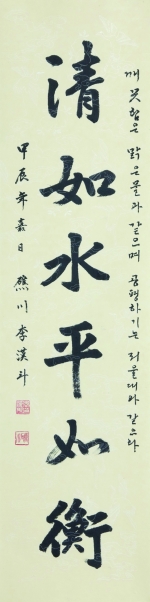 깨끗함은 맑은물과 같으며 공평하기는 저울대와 같으다
清如水平如衡
甲辰年嘉日 樵川 李漢斗